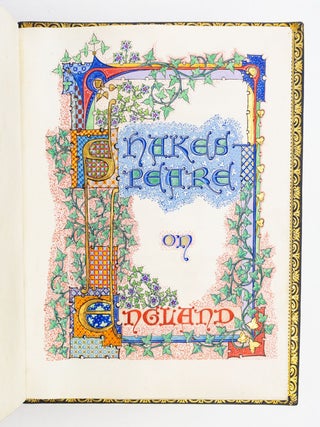 SHAKES
PEARE
ON
ENGLAND